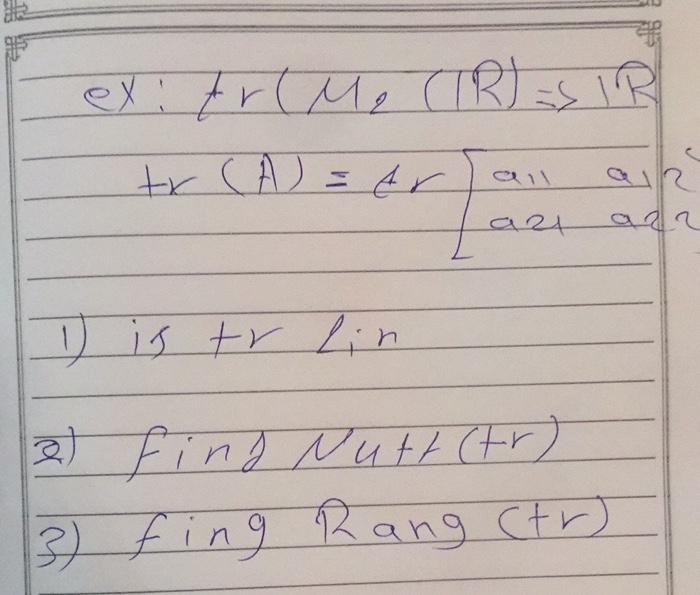 ex: tr(M2 (IR) => IR
tr (A) = tr [ a11 a12
a21 a22
1) is tr Lin
2) find Null (tr)
3) fing Rang (tr)